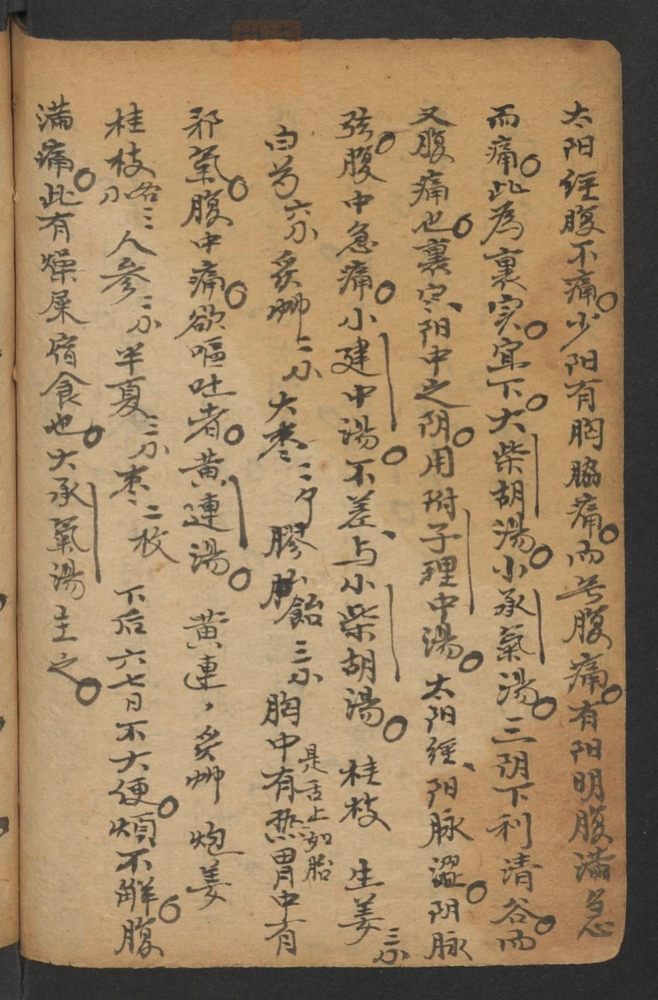 太阳经腹不痛。少阳有胸脇痛。而无腹痛。有阳明腹满急
而痛。此為裏实。宜下。大柴胡湯。小承氣湯。三阴下利清谷。而
又腹痛也。裏寒、阳中之阴。用附子理中湯。太阳经、阳脉澀。阴脉
弦。腹中急痛。小建中湯。不差、与小柴胡湯。桂枝 生姜三小
白芍六小 炙艸二小 大枣二 膠飴三小 胸中有热胃中有
是舌上如胎
邪氣。腹中痛。欲嘔吐者。黄連湯。黄連、炙艸 炮姜
桂枝各三小 人参二小 半夏三小 枣二枚 下后六七日不大便。煩不解。腹
满痛。此有燥屎宿食也。大承氣湯主之。